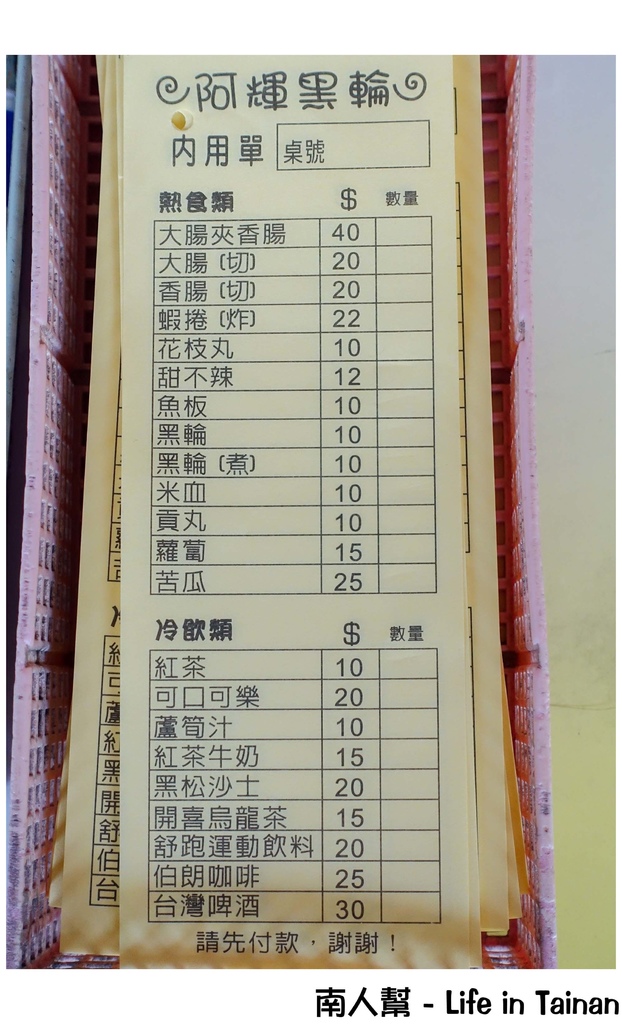 阿輝黑輪
内用單 桌號
熱食類 $ 數量
大腸夾香腸 40
大腸(切) 20
香腸(切) 20
蝦捲(炸) 22
花枝丸 10
甜不辣 12
魚板 10
黑輪 10
黑輪(煮) 10
米血 10
貢丸 10
蘿蔔 15
苦瓜 25
冷飲類 $ 數量
紅茶 10
可口可樂 20
蘆筍汁 10
紅茶牛奶 15
黑松沙士 20
開喜烏龍茶 15
舒跑運動飲料 20
伯朗咖啡 25
台灣啤酒 30
請先付款，謝謝！
南人幫 - Life in Tainan